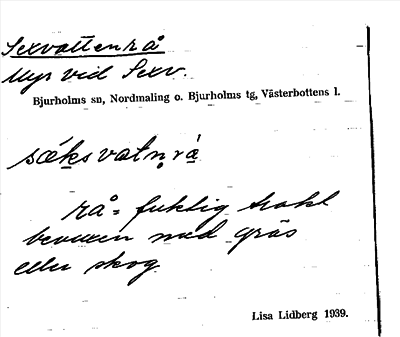 Sexvattenrå
Myr vid Sexv.
Bjurholms sn, Nordmaling o. Bjurholms tg, Västerbottens l.
sæksvatnrå
rå = fuktig trakt
bevuxen med gräs
eller skog
Lisa Lidberg 1939.